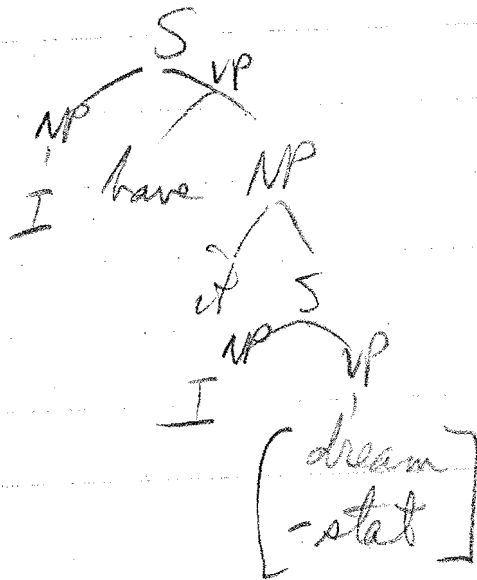 S
VP
NP
I have NP
S
NP VP
I
dream
-stat